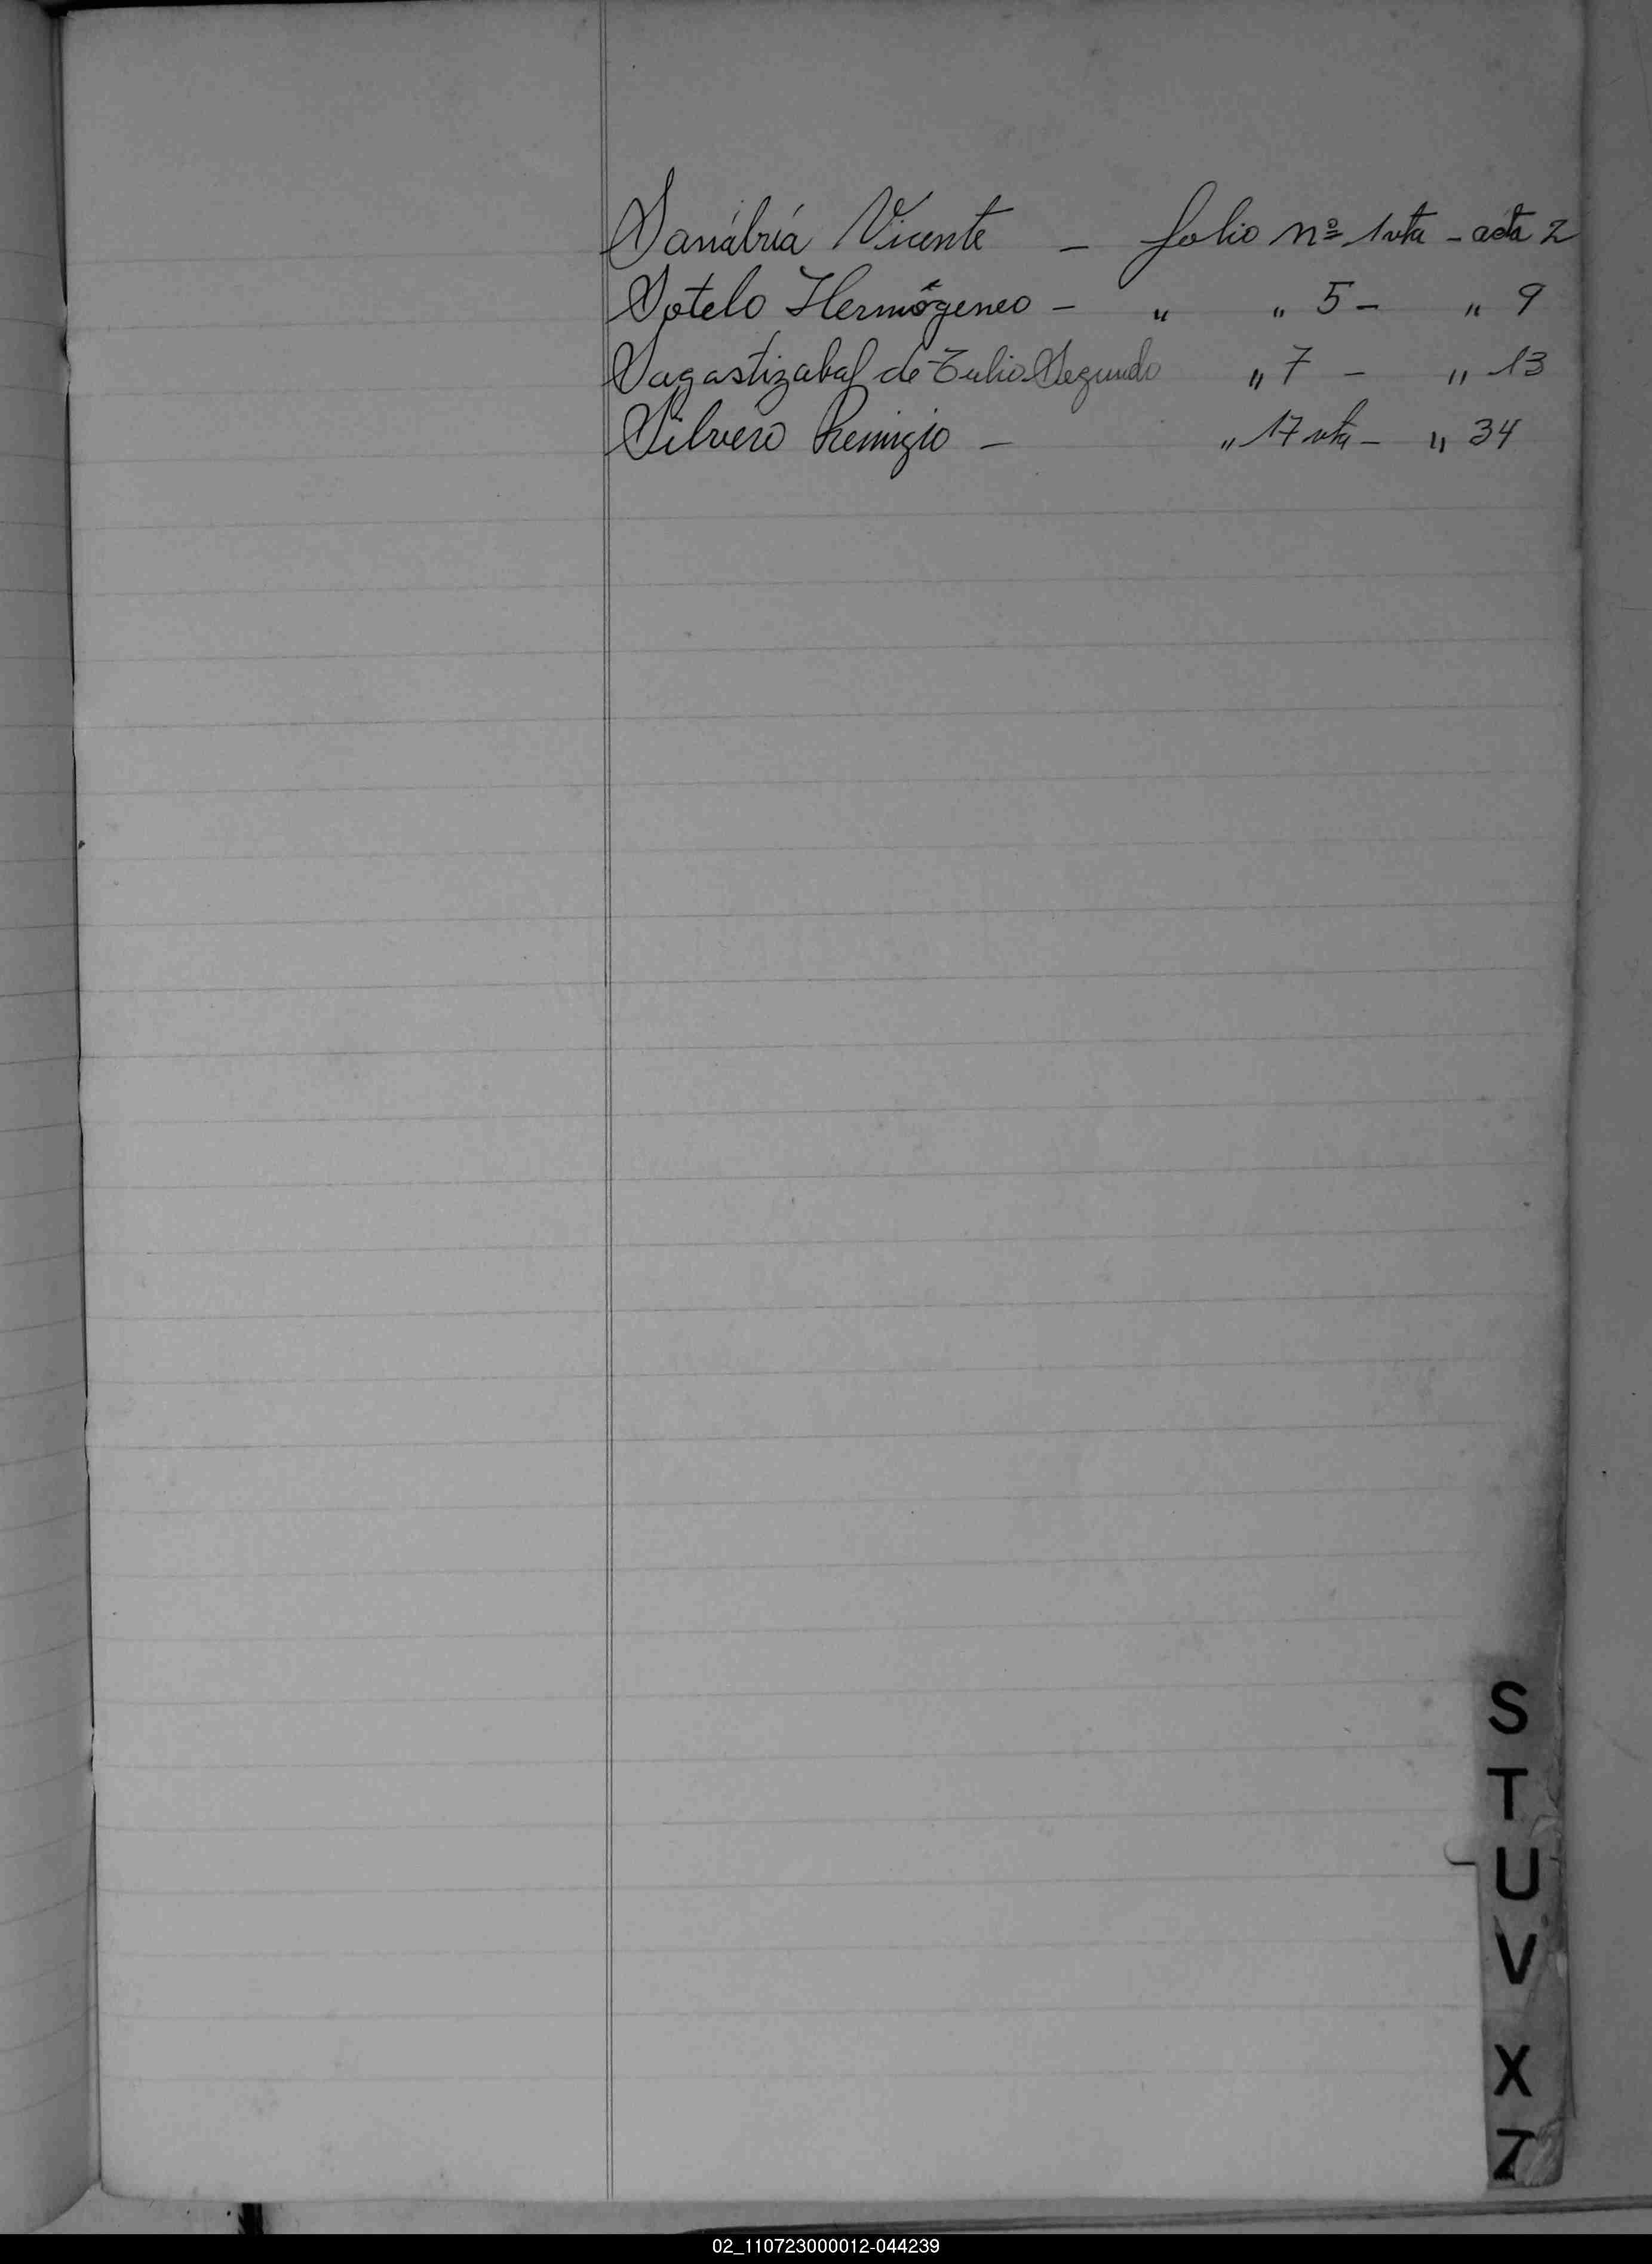 Sanábria Vicente - folio nº 1 vta - acta 2
Sotelo Hermógenes - " " 5 - " 9
Sagastizabal de Tulio Segundo " 7 - " 13
Silvero Remigio - " 17 vta - " 34
S
T
U
V
X
Z
02_110723000012-044239